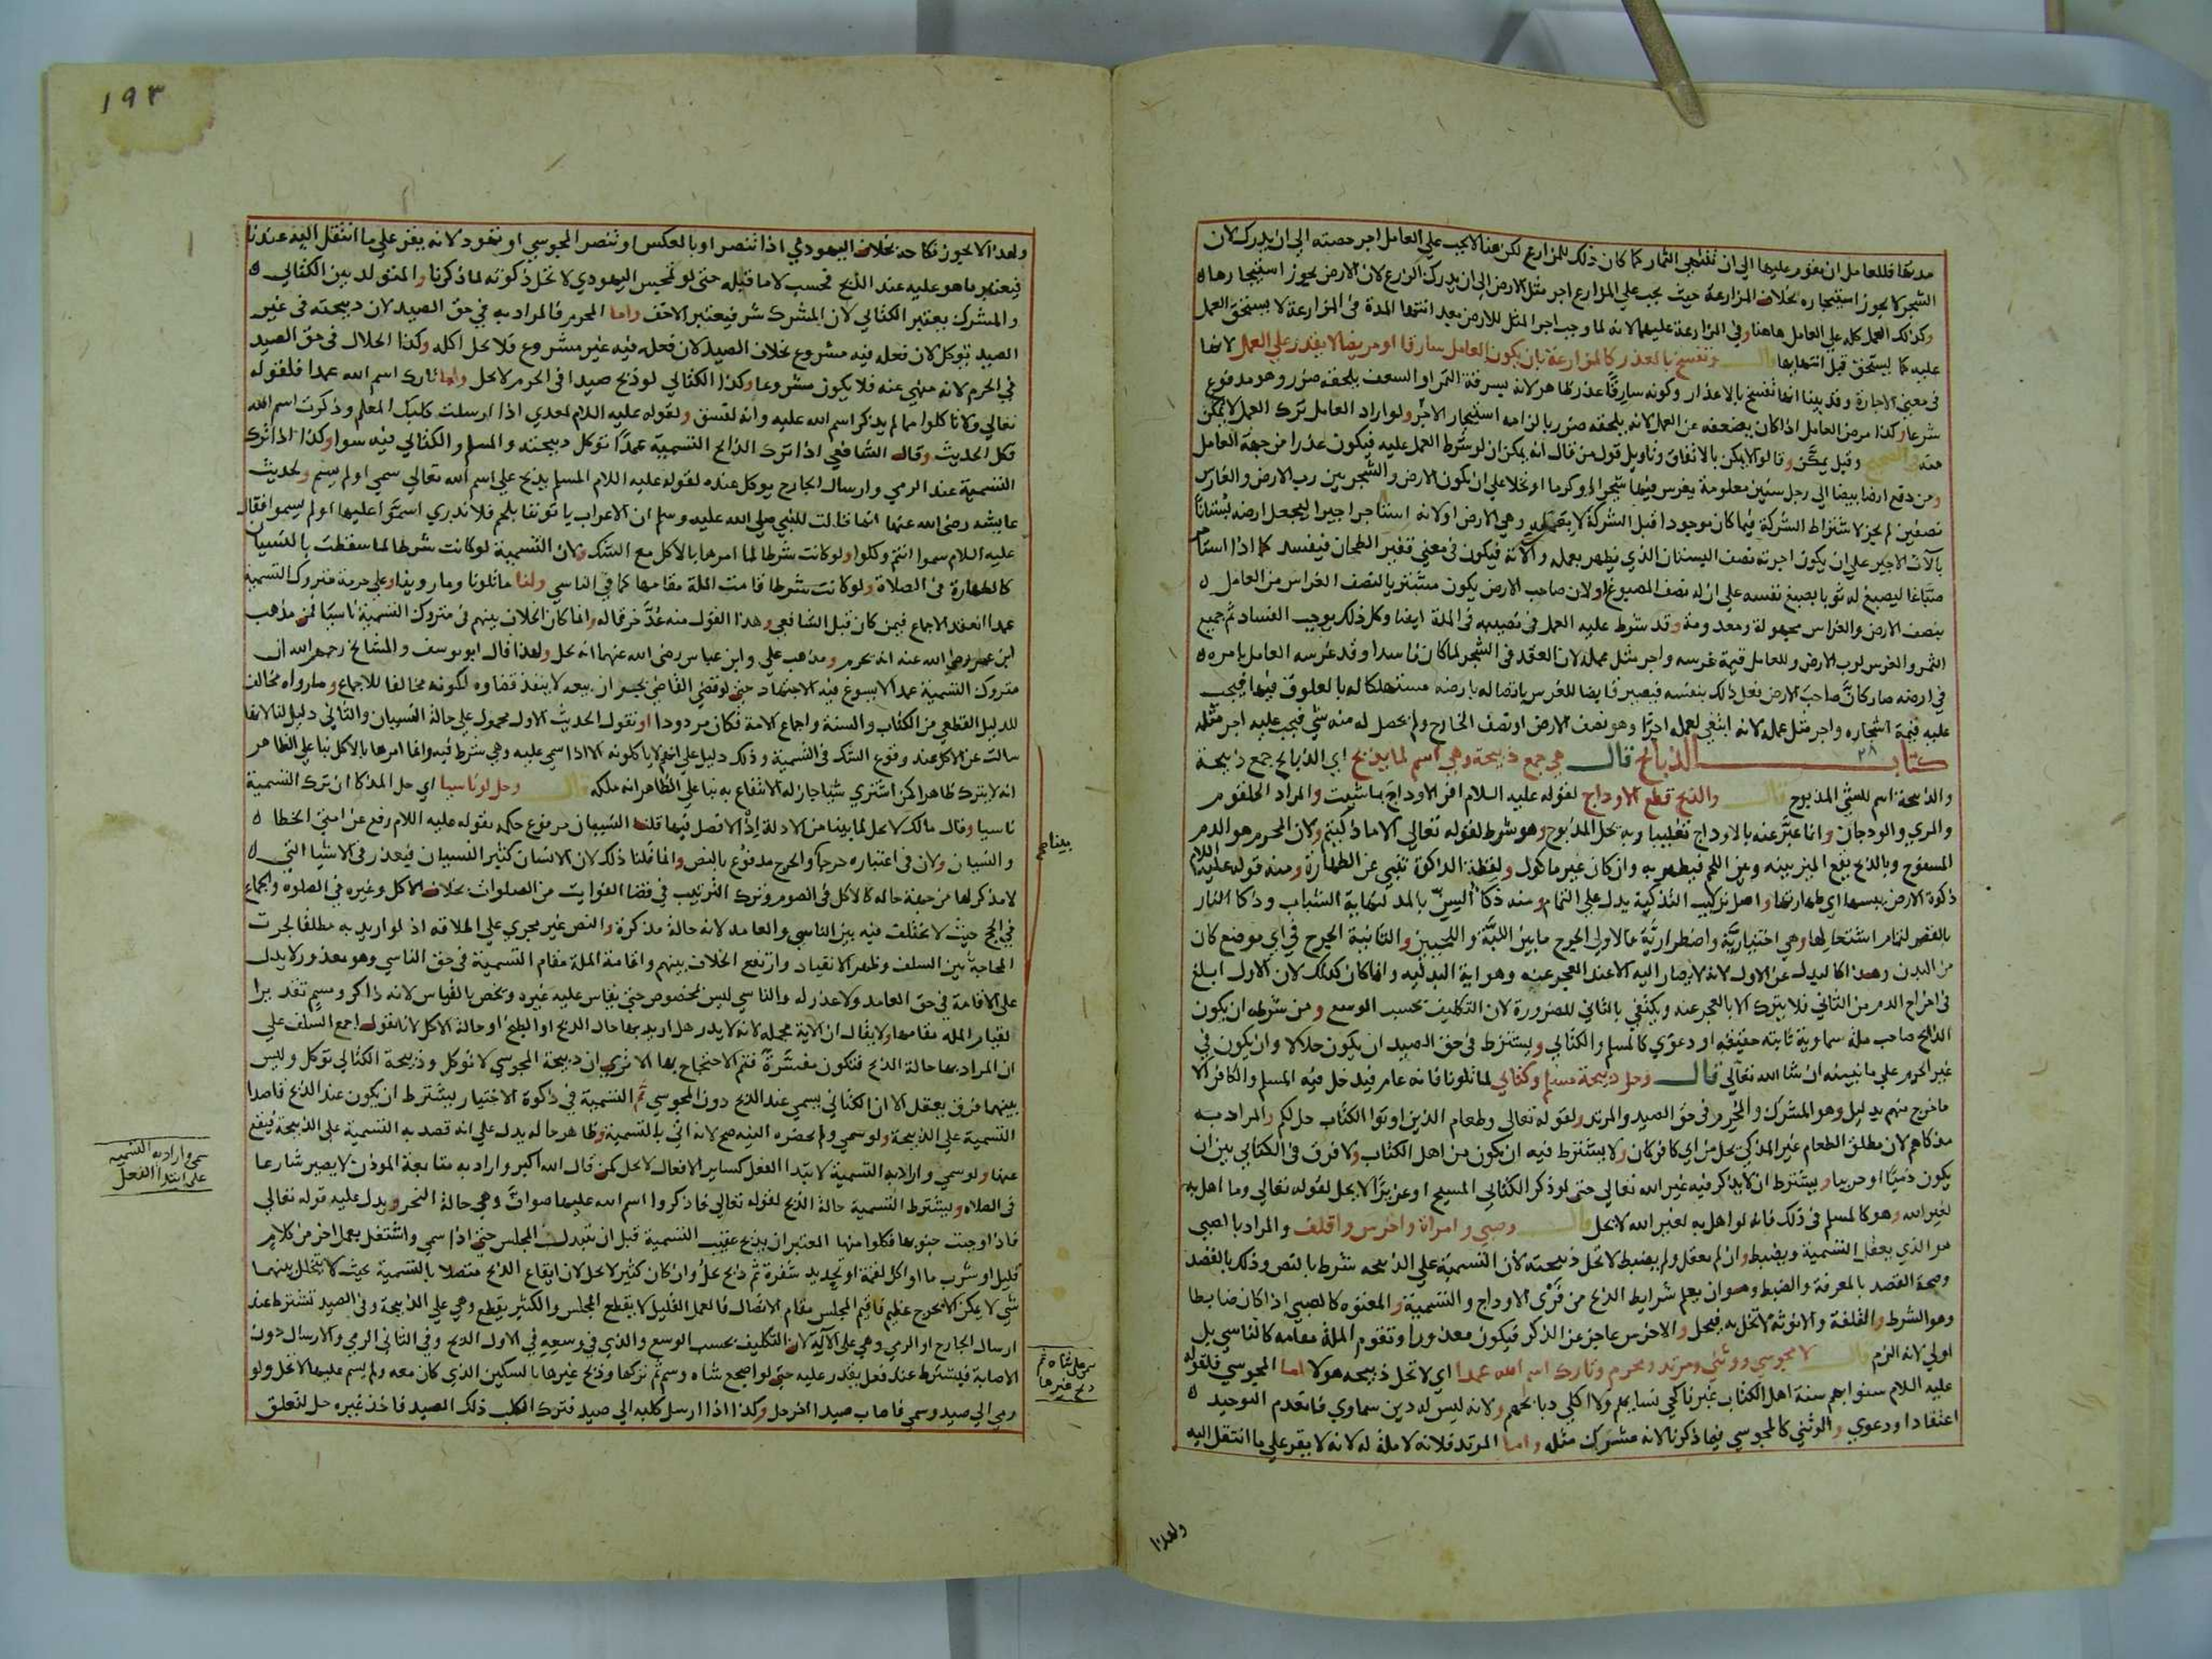 مدتها فللعامل ان يقوم عليها الى ان تنتهي الثمار كما كان ذلك للمزارع لكن هنا لا يجب على العامل اجر حصته الى ان يدرك لان
الشجر لا يجوز استيجاره بخلاف المزارعة حيث يجب على المزارع اجر مثل الارض الى ان يدرك الزرع لان الارض يجوز استيجارها
وكذلك العمل كله على العامل هاهنا وفي المزارعة عليهما لانه لما وجب اجر المثل للارض بعد انتها المدة في المزارعة لا يستحق العمل
عليه كما يستحق قبل انتهايها قال وتفسخ بالعذر كالمزارعة بان يكون العامل سارقا او مريضا لا يقدر على العمل لانها
في معنى الاجارة وقد بينا انها تفسخ بالاعذار وكونه سارقا عذر ظاهر لانه يسرقة الثمر او السعف يلحقه ضرر وهو مدفوع
شرعا وكذا مرض العامل اذا كان يضعفه عن العمل لانه يلحقه ضرر بالزامه استيجار الاجر ولو اراد العامل ترك العمل لا يمكن
منه في الصحيح وقيل يمكن وقالوا لا يمكن بالاتفاق وتاويل قول من قال انه يمكن ان لو شرط العمل عليه فيكون عذرا من جهة العامل
ومن دفع ارضا بيضا الى رجل سنين معلومة يغرس فيها شجرا او كرما او نخلا على ان يكون الارض والشجر بين رب الارض والغارس
نصفين لم يجز لاشتراط الشركة فيما كان موجودا قبل الشركة لا بعمله وهي الارض او لانه استاجر اجيرا ليجعل ارضه بستانا
بآلات الاجير على ان يكون اجرته نصف البستان الذي يظهر بعمله وآلاته فيكون في معنى قفيز الطحان فيفسد كما اذا استاجر
صباغا ليصبغ له ثوبا بصبغ نفسه على ان له نصف المصبوغ او لان صاحب الارض يكون مشتريا لنصف الغراس من العامل
بنصف الارض والغراس مجهولة ومعدومة وقد شرط عليه العمل في نصيبه في المدة ايضا وكل ذلك يوجب الفساد ثم جميع
الثمر والغرس لرب الارض وللعامل قيمة غرسه واجر مثل عمله لان العقد في الشجر لما كان فاسدا وقد غرسه العامل بامره
في ارضه صار كان صاحب الارض فعل ذلك بنفسه فيصير قابضا للغرس باتصاله بارضه مستهلكا له بالعلوق فيها فيجب
عليه قيمة اشجاره واجر مثل عمله لانه ابتغى لعمله اجرا وهو نصف الارض او نصف الخارج ولم يحصل له منه شي فيجب عليه اجر مثله
كتاب الذبائح قال هي جمع ذبيحة وهي اسم لما يذبح اي الذبايح جمع ذبيحة
والذبيحة اسم للشي المذبوح قال والذبح قطع الاوداج لقوله عليه السلام افر الاوداج بما شيت والمراد الحلقوم
والمري والودجان وانما عبر عنه بالاوداج تغليبا وبه يحل المذبوح وهو شرط لقوله تعالى الا ما ذكيتم ولان المحرم هو الدم
المسفوح وبالذبح يقع الميز بينه وبين اللحم فيطهر به وان كان غير ماكول ولفظة الذكوة تنبي عن الطهارة ومنه قوله عليه السلام
ذكوة الارض يبسها اي طهارتها واصل تركيب التذكية يدل على التمام ومنه ذكا السن بالمد لنهاية الشباب وذكا النار
بالقصر لتمام اشتعالها وهي اختيارية واضطرارية فالاولى الجرح ما بين اللبة واللحيين والثانية الجرح في اي موضع كان
من البدن وهذا كالبدل عن الاول لانه لا يصار اليه الا عند العجز عنه وهو اية البدلية وانما كان كذلك لان الاول ابلغ
في اخراج الدم من الثاني فلا يترك الا بالعجز عنه ويكتفي بالثاني للضرورة لان التكليف بحسب الوسع ومن شرطه ان يكون
الذابح صاحب ملة سماوية ثابتة حقيقة او دعوى كالمسلم والكتابي ويشترط في حق الصيد ان يكون حلالا وان يكون في
غير الحرم على ما نبينه ان شا الله تعالى قال وحل ذبيحة مسلم وكتابي لما تلونا فانه عام فيدخل فيه المسلم والكافر الا
ما خرج منهم بدليل وهو المشرك والمحرم في حق الصيد والمرتد ولقوله تعالى وطعام الذين اوتوا الكتاب حل لكم والمراد به
مذكاهم لان مطلق الطعام غير المذكى يحل من اي كافر كان ولا يشترط فيه ان يكون من اهل الكتاب ولا فرق في الكتابي بين ان
يكون ذميا او حربيا ويشترط ان لا يذكر فيه غير الله تعالى حتى لو ذكر الكتابي المسيح او عزيرا لا يحل لقوله تعالى وما اهل به
لغير الله وهو كالمسلم في ذلك فانه لو اهل به لغير الله لا يحل قال وصبي وامراة واخرس واقلف والمراد بالصبي
هو الذي يعقل التسمية ويضبط وان لم يعقل ولم يضبط لا تحل ذبيحته لان التسمية على الذبيحه شرط بالنص وذلك بالقصد
وصحة القصد بالمعرفة والضبط وهو ان يعلم شرايط الذبح من فري الاوداج والتسمية والمعتوه كالصبي اذا كان ضابطا
وهو الشرط والقلفة والانوثة لا تخل به فيحل والاخرس عاجز عن الذكر فيكون معذورا وتقوم الملة مقامه كالناسي بل
اولى لانه الزم قال لا مجوسي ووثني ومرتد ومحرم وتارك اسم الله عمدا اي لا تحل ذبيحه هولا اما المجوسي فلقوله
عليه السلام سنوا بهم سنة اهل الكتاب غير ناكحي نسايهم ولا اكلي ذبايحهم ولانه ليس له دين سماوي فانعدم التوحيد
اعتقادا ودعوى والوثني كالمجوسي فيما ذكرنا لانه مشرك مثله واما المرتد فلانه لا ملة له لانه لا يقر على ما انتقل اليه
ولهذا
١٩٣
ولهذا لا يجوز نكاحه بخلاف اليهودي اذا تنصر او بالعكس او تنصر المجوسي او تهود لانه يقر على ما انتقل اليه عندنا
فيعتبر ما هو عليه عند الذبح فحسب لا ما قبله حتى لو تمجس اليهودي لا تحل ذكوته لما ذكرنا والمتولد بين الكتابي
والمشرك يعتبر الكتابي لان المشرك شر فيعتبر الاخف واما المحرم فالمراد به في حق الصيد لان ذبيحته في غير
الصيد تؤكل لان فعله فيه مشروع بخلاف الصيد لان فعله فيه غير مشروع فلا يحل اكله وكذا الحلال في حق الصيد
في الحرم لانه منهي عنه فلا يكون مشروعا وكذا الكتابي لو ذبح صيدا في الحرم لا يحل واما تارك اسم الله عمدا فلقوله
تعالى ولا تاكلوا مما لم يذكر اسم الله عليه وانه لفسق ولقوله عليه السلام لعدي اذا ارسلت كلبك المعلم وذكرت اسم الله
فكل الحديث وقال الشافعي اذا ترك الذابح التسمية عمدا تؤكل ذبيحته والمسلم والكتابي فيه سوا وكذا اذا ترك
التسمية عند الرمي وارسال الجارح يوكل عنده لقوله عليه السلام المسلم يذبح على اسم الله تعالى سمى او لم يسم ولحديث
عايشه رضى الله عنها انها قالت للنبي صلى الله عليه وسلم ان الاعراب ياتوننا بلحم فلا ندري اسموا عليها او لم يسموا فقال
عليه السلام سموا انتم وكلوا ولو كانت شرطا لما امرها بالاكل مع الشك ولان التسمية لو كانت شرطا لما سقطت بالنسيان
كالطهارة في الصلاة ولو كانت شرطا قامت الملة مقامها كما في الناسي ولنا ما تلونا وما روينا وعلى حرمة متروك التسمية
عمدا انعقد الاجماع فيمن كان قبل الشافعي وهذا القول منه عد خرقا له وانما كان الخلاف بينهم في متروك التسمية ناسيا فمن مذهب
ابن عمر رضى الله عنه انه يحرم ومذهب علي وابن عباس رضى الله عنهما انه يحل ولهذا قال ابو يوسف والمشايخ رحمهم الله ان
متروك التسمية عمدا لا يسوغ فيه الاجتهاد حتى لو قضى القاضي بجواز بيعه لا ينفذ قضاوه لكونه مخالفا للاجماع وما رواه مخالف
للدليل القطعي من الكتاب والسنة واجماع الامة فكان مردودا او نقول الحديث الاول محمول على حالة النسيان والثاني دليل لنا لانها
سالت عن الاكل عند وقوع الشك في التسمية وذلك دليل على انهم لا ياكلونه الا اذا سمي عليه وهي شرط فيه وانما امرها بالاكل بنا على الظاهر
انه لا يترك ظاهرا كمن اشترى شيا جاز له الانتفاع به بنا على الظاهر انه ملكه قال وحل لو ناسيا اي حل المذكا ان ترك التسمية
ناسيا وقال مالك لا يحل لما بينا من الادلة اذ لا فصل فيها قلنا النسيان مرفوع حكمه بقوله عليه السلام رفع عن امتي الخطا
والنسيان ولان في اعتباره حرجا والحرج مدفوع بالنص وانما قلنا ذلك لان الانسان كثير النسيان فيعذر في الاشيا التي
لا مذكر لها من جهة حاله كالاكل في الصوم وترك الترتيب في قضا الفوايت من الصلوات بخلاف الاكل وغيره في الصلوة والجماع
في الحج حيث لا يختلف فيه بين الناسي والعامد لانه حالة مذكرة والنص غير مجري على اطلاقه اذ لو اريد به مطلقا لجرت
المحاجة بين السلف وظهر الانقياد وارتفع الخلاف بينهم واقامة الملة مقام التسمية في حق الناسي وهو معذور لا يدل
على الاقامة في حق العامد ولا عذر له والناسي ليس بمخصوص حتى يقاس عليه غيره ويخص بالقياس لانه ذاكر ومسم تقديرا
لقيام الملة مقامها ولا يقال ان الاية مجملة لانه لا يدر هل اريد بها حال الذبح او الطبخ او حالة الاكل لانا نقول اجمع السلف على
ان المراد بها حالة الذبح فتكون مفسرة فتم الاحتجاج بها الا ترى ان ذبيحة المجوسي لا تؤكل وذبيحة الكتابي تؤكل وليس
بينهما فرق يعقل الا ان الكتابي يسمي عند الذبح دون المجوسي ثم التسمية في ذكوة الاختيار يشترط ان يكون عند الذبح قاصدا
التسمية على الذبيحة ولو سمى ولم تحضره النية صح لانه اتى بالتسمية وظاهر حاله يدل على انه قصد به التسمية على الذبيحة فيقع
عنها ولو سمى واراد به التسمية لابتدا الفعل كساير الافعال لا يحل كمن قال الله اكبر واراد به متابعة الموذن لا يصير شارعا
في الصلاه ويشترط التسمية حالة الذبح لقوله تعالى فاذكروا اسم الله عليها صواف وهي حالة النحر ويدل عليه قوله تعالى
فاذا وجبت جنوبها فكلوا منها المعتبر ان يذبح عقيب التسمية قبل ان يتبدل المجلس حتى اذا سمى واشتغل بعمل اخر من كلام
قليل او شرب ما او اكل لقمة او تحديد شفرة ثم ذبح يحل وان كان كثيرا لا يحل لان ايقاع الذبح متصلا بالتسمية بحيث لا يتخلل بينهما
شي لا يمكن الا بحرج عظيم فاقيم المجلس مقام الاتصال فالعمل القليل لا يقطع المجلس والكثير يقطع وهي على الذبيحة وفي الصيد تشترط عند
ارسال الجارح او الرمي وهي على الالة لان التكليف بحسب الوسع والذي في وسعه في الاول الذبح وفي الثاني الرمي والارسال دون
الاصابة فيشترط عند فعل يقدر عليه حتى لو اضجع شاه وسمى ثم تركها وذبح غيرها بالسكين الذي كان معه ولم يسم عليها لا تحل ولو
رمى الى صيد وسمى فاصاب صيدا اخر حل وكذا اذا ارسل كلبه الى صيد فترك الكلب ذلك الصيد فاخذ غيره حل لتعلق
سمى واراد به التسمية
على ابتدا الفعل
سمى على شاه ثم
ذبح غيرها